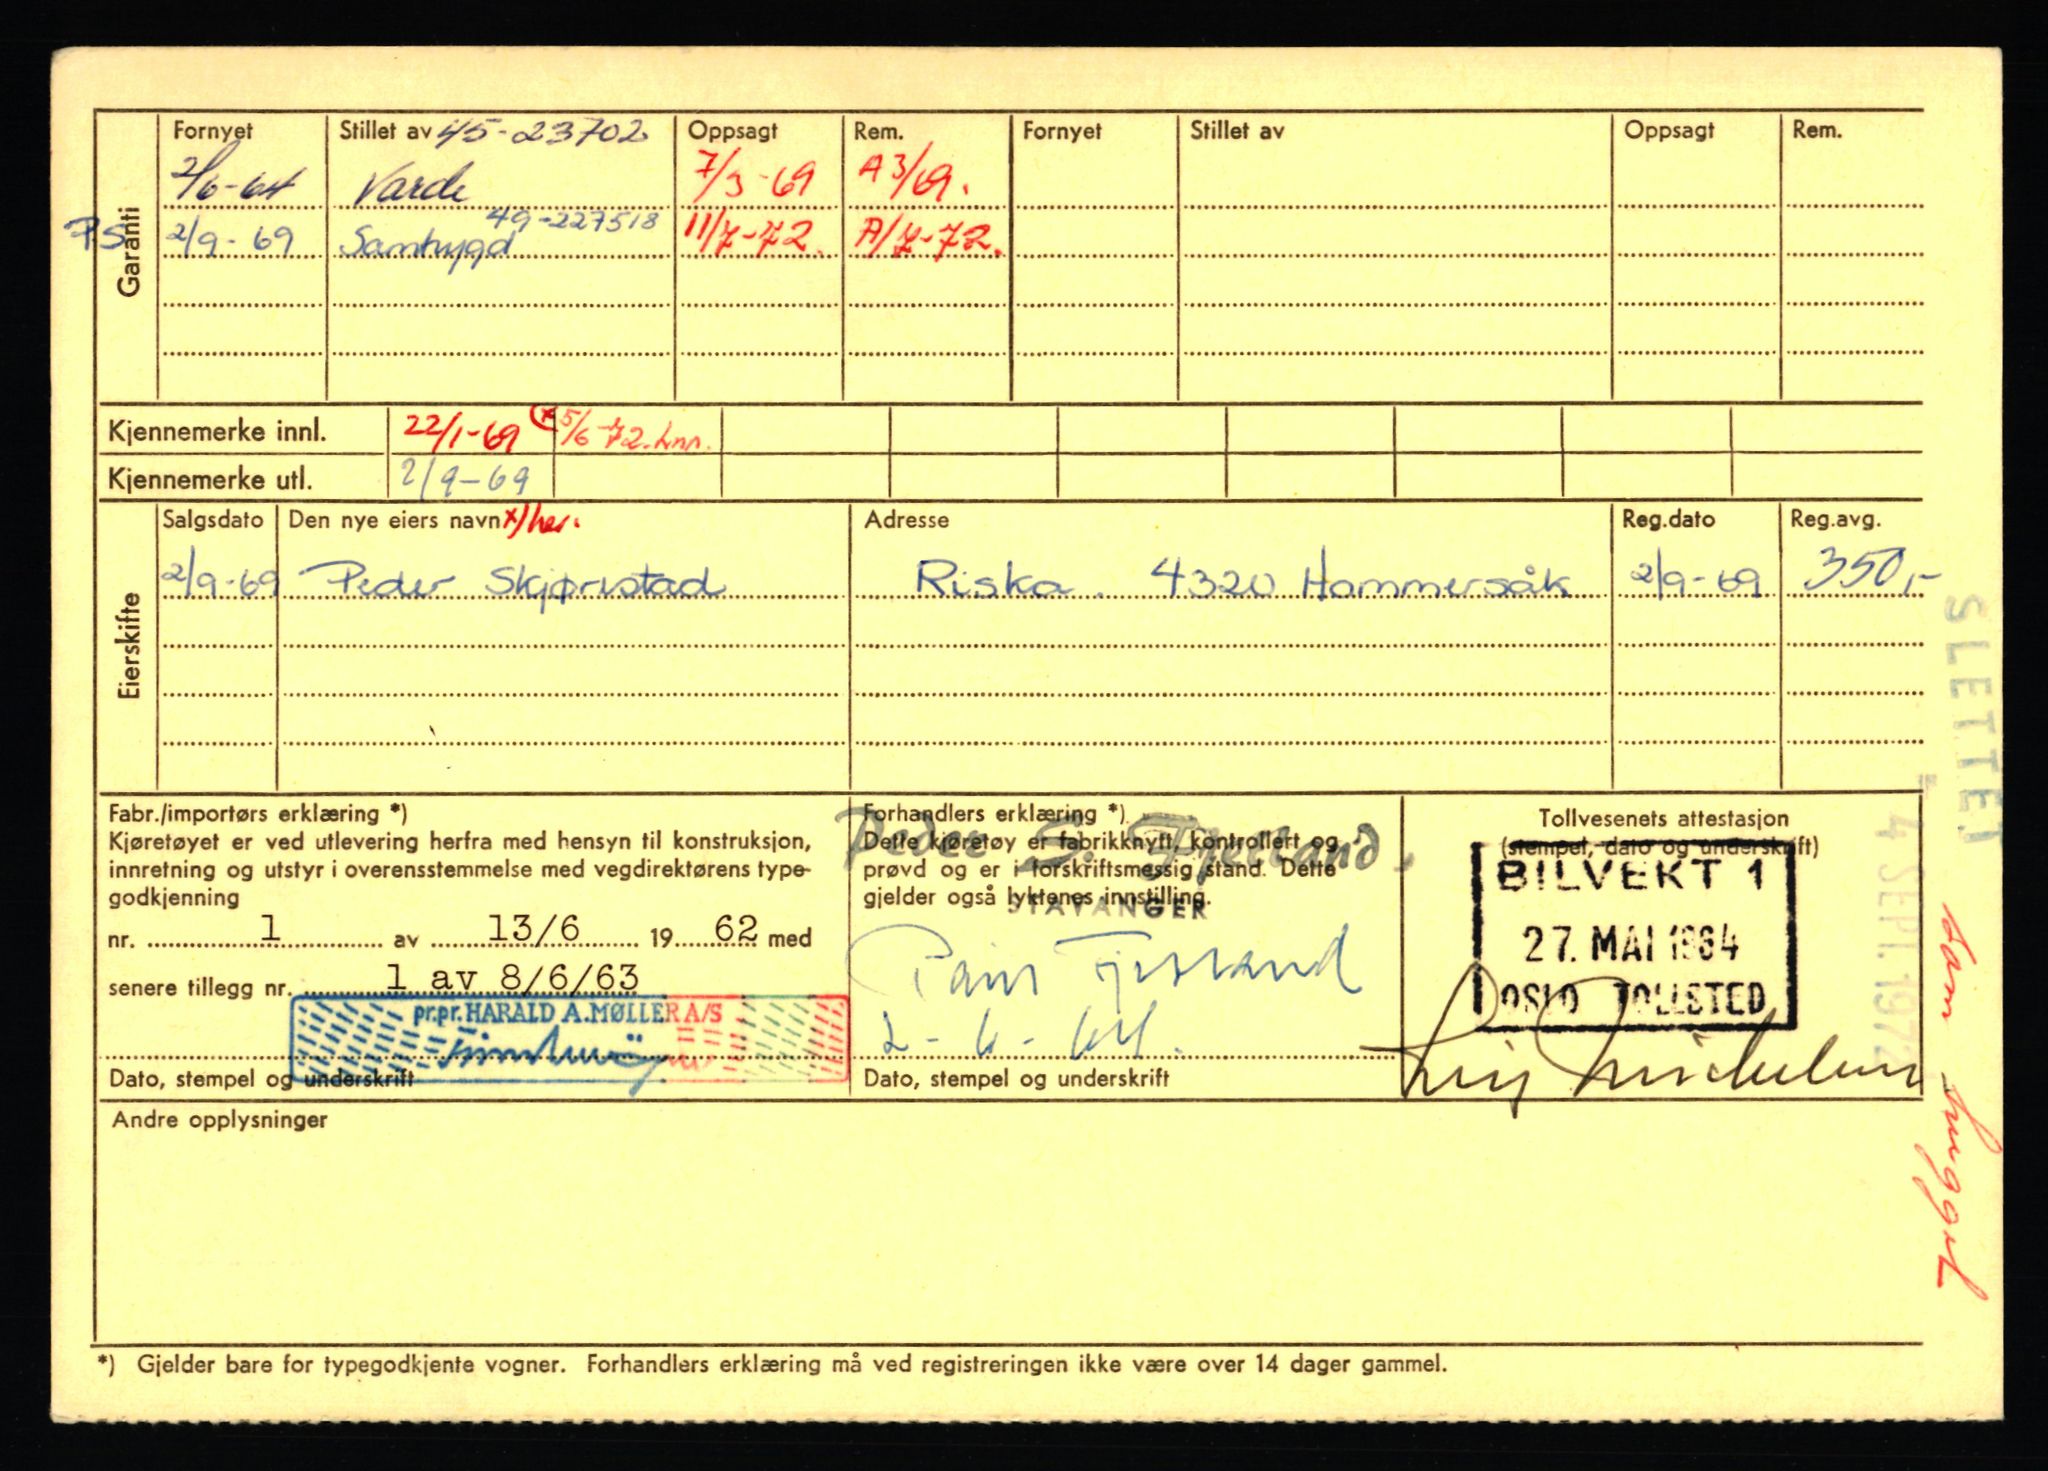 Fornyet Stillet av 45-23702 Oppsagt Rem. Fornyet Stillet av Oppsagt Rem.
2/6-64 Varde 7/3-69 A3/69.
49-227518
PS 2/9-69 Samtrygd 11/7-72. A/7-72.
Garanti
Kjennemerke innl. 22/1-69 5/6-72.
Kjennemerke utl. 2/9-69
Salgsdato Den nye eiers navn x) Adresse Reg.dato Reg.avg.
2/9-69 Peder Skjørestad Riska. 4320 Hommersåk 2/9-69 350,-
Eierskifte
SLETTET
4 SEPT. 1972
som hugget
Fabr./importørs erklæring *)
Kjøretøyet er ved utlevering herfra med hensyn til konstruksjon,
innretning og utstyr i overensstemmelse med vegdirektørens type-
godkjenning
nr. 1 av 13/6 1962 med
senere tillegg nr. 1 av 8/6/63
pr.pr. HARALD A. MØLLER A/S
Dato, stempel og underskrift
Forhandlers erklæring *)
Dette kjøretøy er fabrikknytt, kontrollert og
prøvd og er i forskriftsmessig stand. Dette
gjelder også lyktenes innstilling.
Peder S. Fjelland.
STAVANGER
Fjelland
2-6-64.
Dato, stempel og underskrift
Tollvesenets attestasjon
(stempel, dato og underskrift)
BILVEKT 1
27. MAI 1964
OSLO TOLLSTED
Andre opplysninger
*) Gjelder bare for typegodkjente vogner. Forhandlers erklæring må ved registreringen ikke være over 14 dager gammel.